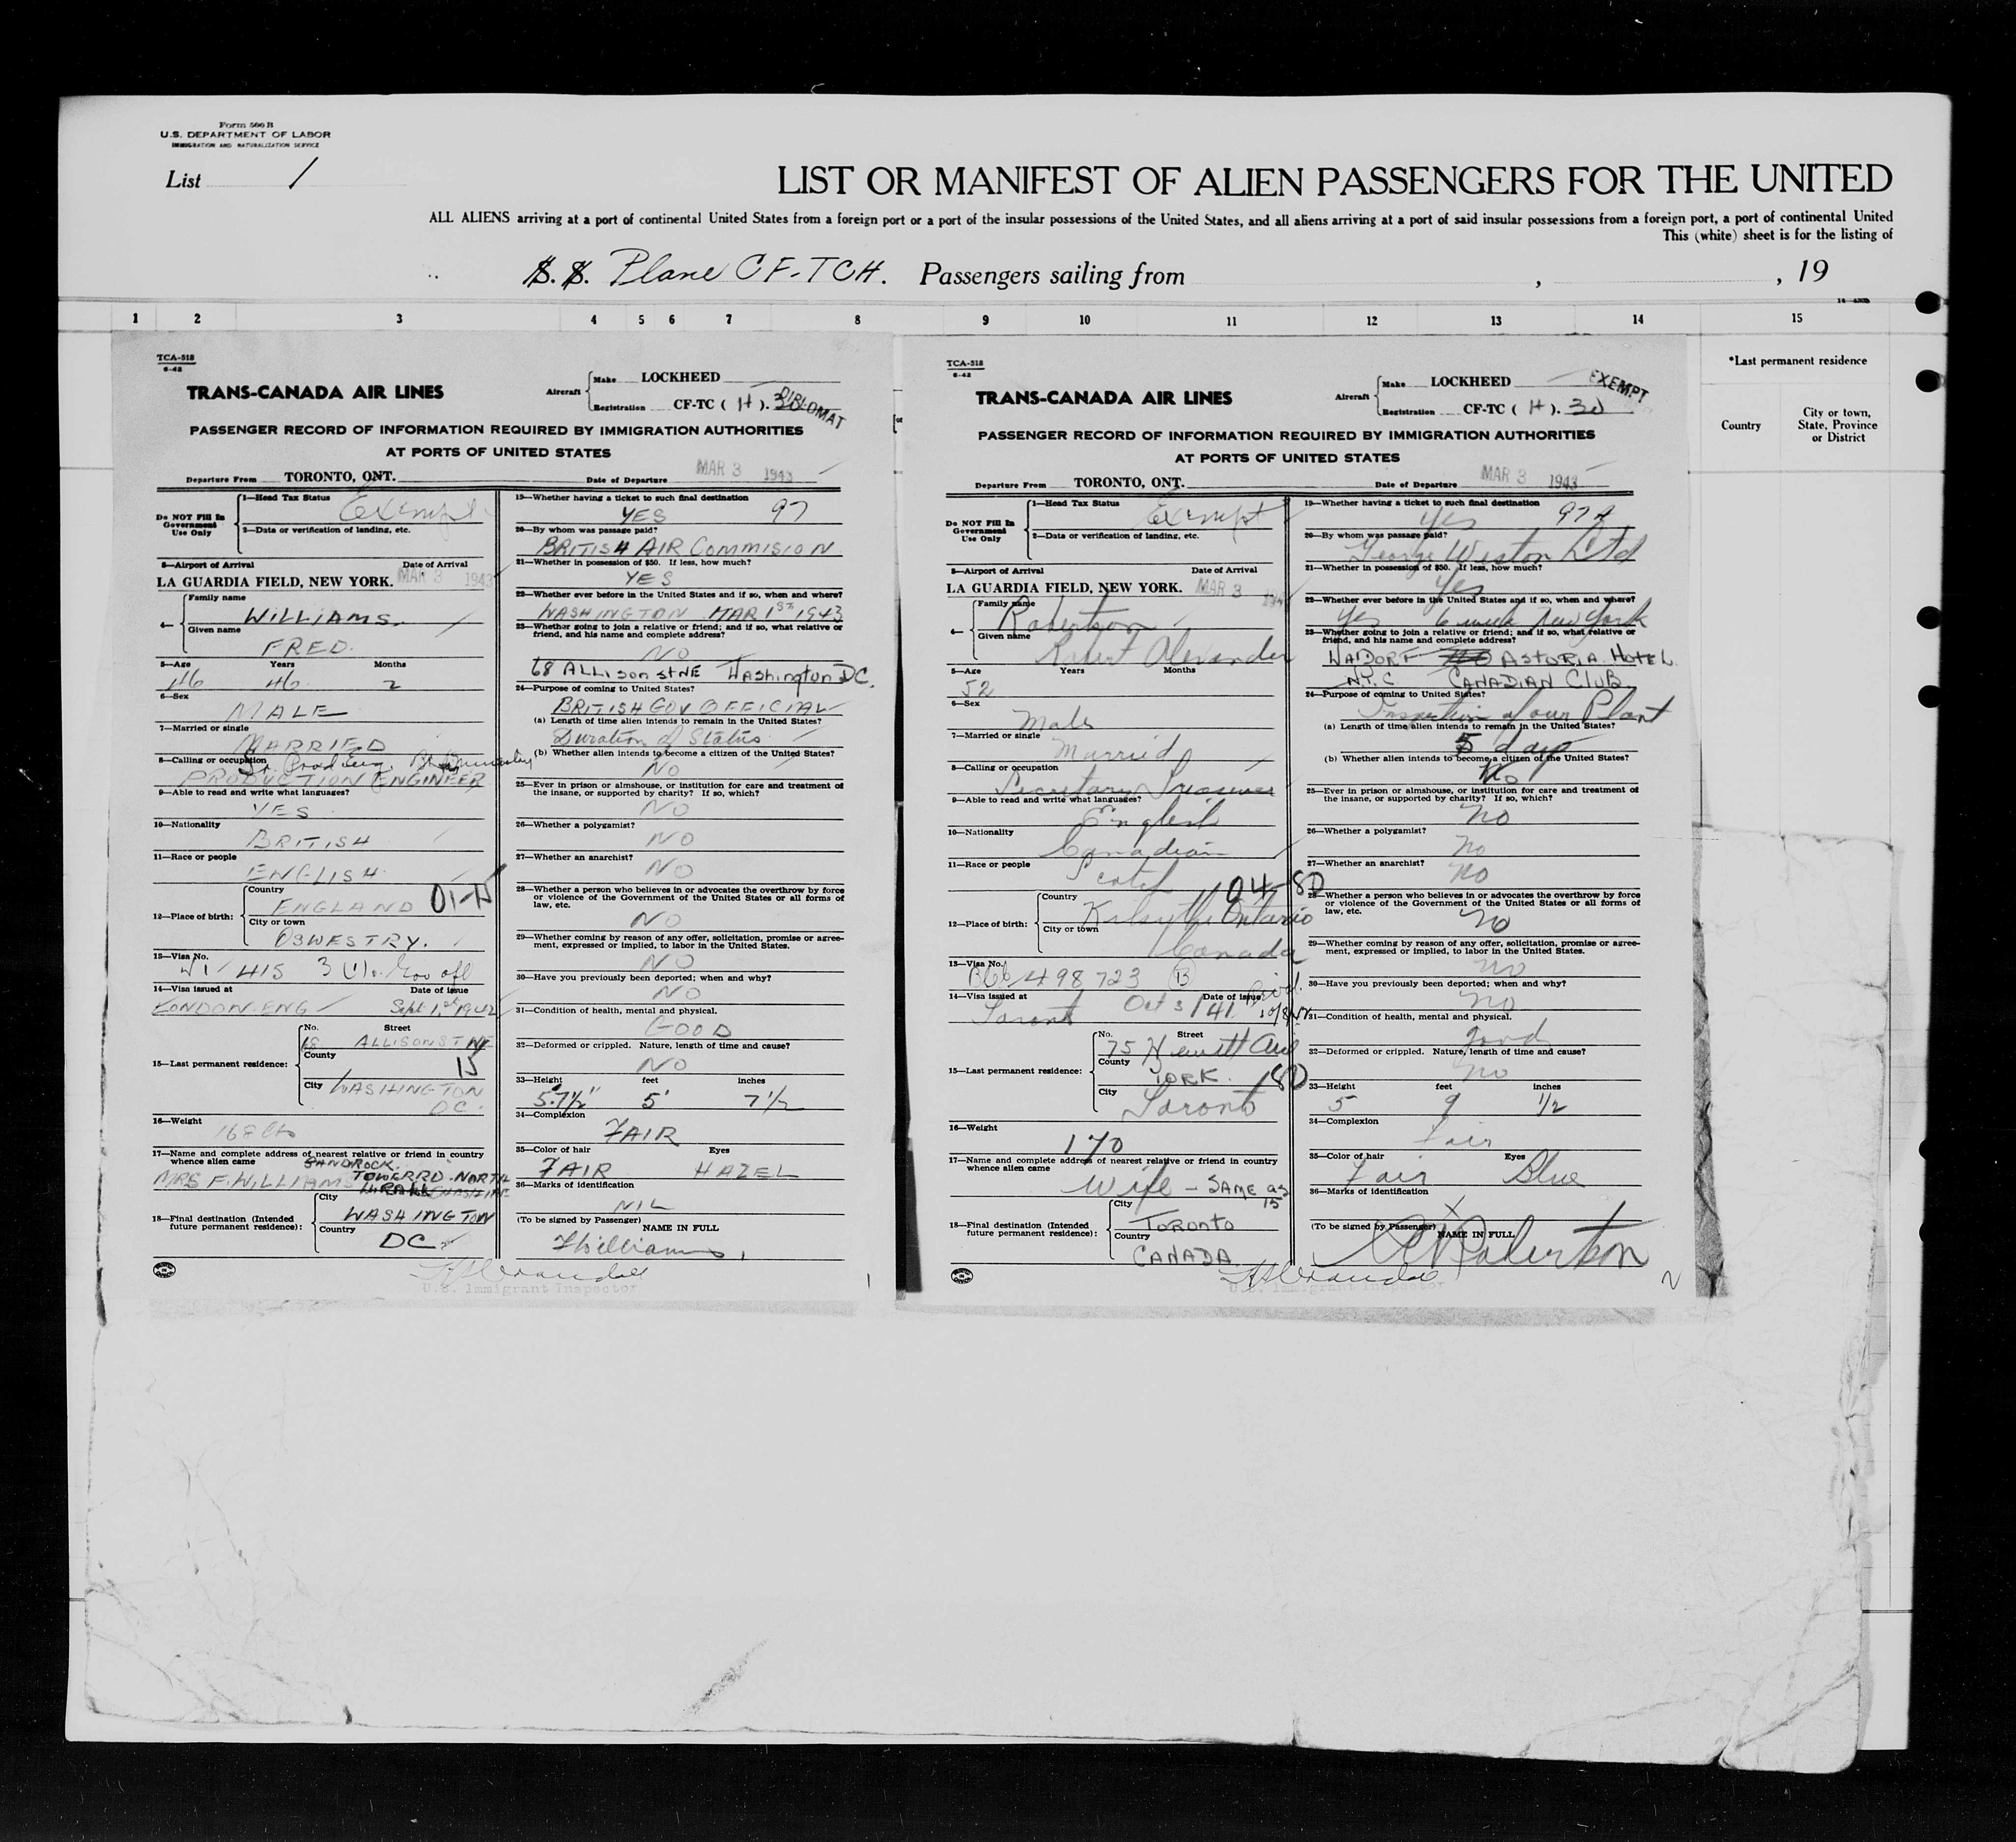 Form 500 B
U.S. DEPARTMENT OF LABOR
IMMIGRATION AND NATURALIZATION SERVICE
List 1
LIST OR MANIFEST OF ALIEN PASSENGERS FOR THE UNITED
ALL ALIENS arriving at a port of continental United States from a foreign port or a port of the insular possessions of the United States, and all aliens arriving at a port of said insular possessions from a foreign port, a port of continental United
This (white) sheet is for the listing of
S. S. Plane CF-TCH. Passengers sailing from , , 19
1 2 3 4 5 6 7 8 9 10 11 12 13 14 15
*Last permanent residence
Country
City or town, State, Province or District
TCA-518
6-42
TRANS-CANADA AIR LINES
Aircraft Make LOCKHEED
Registration CF-TC ( H ). 30
DIPLOMAT
PASSENGER RECORD OF INFORMATION REQUIRED BY IMMIGRATION AUTHORITIES
AT PORTS OF UNITED STATES
Departure From TORONTO, ONT. Date of Departure MAR 3 1943
Do NOT Fill In Government Use Only
1—Head Tax Status Exempt
2—Data or verification of landing, etc.
3—Airport of Arrival Date of Arrival
LA GUARDIA FIELD, NEW YORK. MAR 3 1943
4— Family name WILLIAMS.
Given name FRED.
5—Age Years Months
46 46 2
6—Sex
MALE
7—Married or single
MARRIED
8—Calling or occupation
PRODUCTION ENGINEER
9—Able to read and write what languages?
YES
10—Nationality
BRITISH
11—Race or people
ENGLISH
12—Place of birth: Country ENGLAND
City or town
OSWESTRY.
13—Visa No.
415 3 (1) Gov off
14—Visa issued at Date of issue
LONDON. ENG Sept 1st 1942
15—Last permanent residence: No. Street
68 ALLISON ST NE
County 15
City WASHINGTON
DC.
16—Weight
168 lbs
17—Name and complete address of nearest relative or friend in country whence alien came
SANDROCK.
MRS F. WILLIAMS TOWER RD. NORTH
18—Final destination (Intended future permanent residence): City
WASHINGTON
Country
DC
19—Whether having a ticket to such final destination
YES 97
20—By whom was passage paid?
BRITISH AIR COMMISION
21—Whether in possession of $50. If less, how much?
YES
22—Whether ever before in the United States and if so, when and where?
WASHINGTON MAR 1ST 1943
23—Whether going to join a relative or friend; and if so, what relative or friend, and his name and complete address?
NO
68 ALLISON ST NE Washington DC.
24—Purpose of coming to United States?
BRITISH GOV OFFICIAL
(a) Length of time alien intends to remain in the United States?
Duration of Status
(b) Whether alien intends to become a citizen of the United States?
NO
25—Ever in prison or almshouse, or institution for care and treatment of the insane, or supported by charity? If so, which?
NO
26—Whether a polygamist?
NO
27—Whether an anarchist?
NO
28—Whether a person who believes in or advocates the overthrow by force or violence of the Government of the United States or all forms of law, etc.
NO
29—Whether coming by reason of any offer, solicitation, promise or agreement, expressed or implied, to labor in the United States.
NO
30—Have you previously been deported; when and why?
NO
31—Condition of health, mental and physical.
GOOD
32—Deformed or crippled. Nature, length of time and cause?
NO
33—Height feet inches
5-7½" 5' 7½
34—Complexion
FAIR
35—Color of hair Eyes
FAIR HAZEL
36—Marks of identification
NIL
(To be signed by Passenger) NAME IN FULL
F Williams
U.S. Immigrant Inspector
1
TCA-518
6-42
TRANS-CANADA AIR LINES
Aircraft Make LOCKHEED
Registration CF-TC ( H ). 30
EXEMPT
PASSENGER RECORD OF INFORMATION REQUIRED BY IMMIGRATION AUTHORITIES
AT PORTS OF UNITED STATES
Departure From TORONTO, ONT. Date of Departure MAR 3 1943
Do NOT Fill In Government Use Only
1—Head Tax Status Exempt
2—Data or verification of landing, etc.
3—Airport of Arrival Date of Arrival
LA GUARDIA FIELD, NEW YORK. MAR 3
4— Family name Robertson
Given name Robert Alexander
5—Age Years Months
52
6—Sex
Male
7—Married or single
Married
8—Calling or occupation
Secretary Treasurer
9—Able to read and write what languages?
English
10—Nationality
Canadian
11—Race or people
Scotch
104-80
12—Place of birth: Country
Kilsyth Ontario
City or town
Canada
13—Visa No.
498723 B
14—Visa issued at Date of issue
Toronto Oct 3 / 41
15—Last permanent residence: No. Street
75 Hewitt Ave
County
YORK. 80
City
Toronto
16—Weight
170
17—Name and complete address of nearest relative or friend in country whence alien came
Wife - SAME as 15
18—Final destination (Intended future permanent residence): City
TORONTO
Country
CANADA
19—Whether having a ticket to such final destination
Yes 97
20—By whom was passage paid?
George Weston Ltd
21—Whether in possession of $50. If less, how much?
Yes
22—Whether ever before in the United States and if so, when and where?
Yes 6 week New York
23—Whether going to join a relative or friend; and if so, what relative or friend, and his name and complete address?
WALDORF ASTORIA HOTEL
N.Y.C CANADIAN CLUB
24—Purpose of coming to United States?
Inspection of our Plant
(a) Length of time alien intends to remain in the United States?
5 days
(b) Whether alien intends to become a citizen of the United States?
No
25—Ever in prison or almshouse, or institution for care and treatment of the insane, or supported by charity? If so, which?
no
26—Whether a polygamist?
no
27—Whether an anarchist?
no
28—Whether a person who believes in or advocates the overthrow by force or violence of the Government of the United States or all forms of law, etc.
no
29—Whether coming by reason of any offer, solicitation, promise or agreement, expressed or implied, to labor in the United States.
no
30—Have you previously been deported; when and why?
no
31—Condition of health, mental and physical.
good
32—Deformed or crippled. Nature, length of time and cause?
no
33—Height feet inches
5 9 1/2
34—Complexion
fair
35—Color of hair Eyes
Fair Blue
36—Marks of identification
X
(To be signed by Passenger) NAME IN FULL
Robertson
U.S. Immigrant Inspector
2